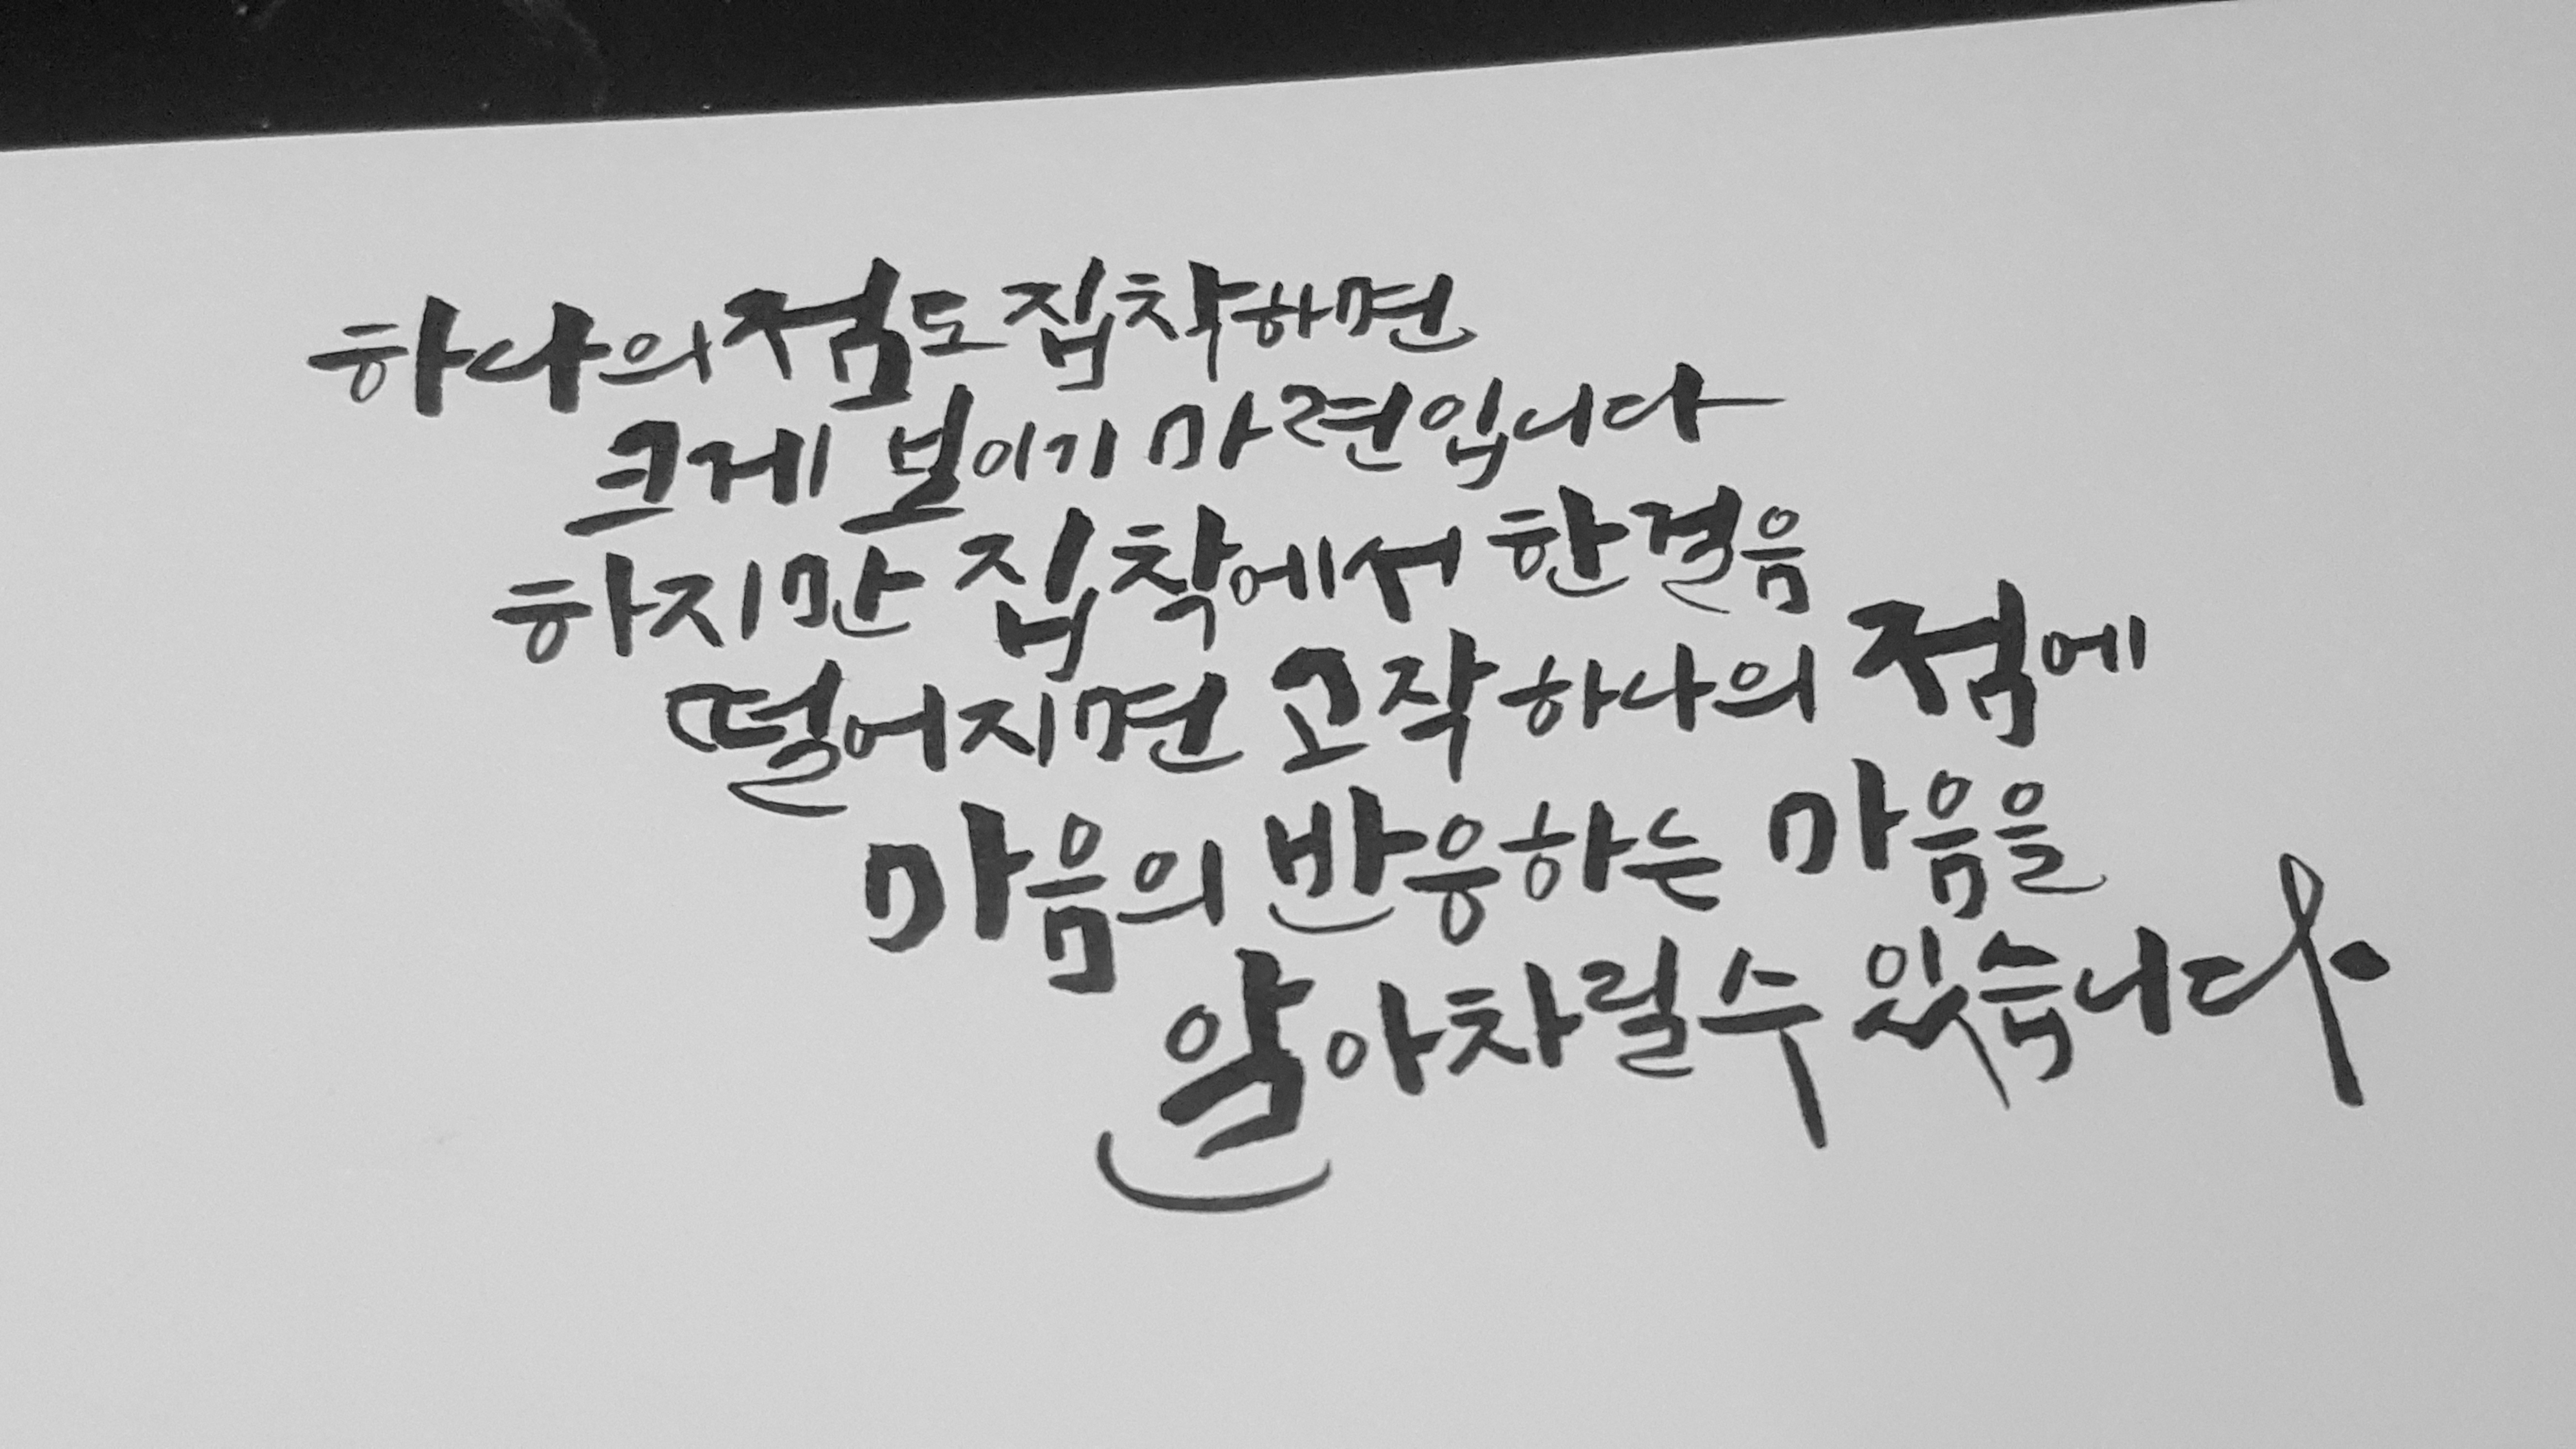 하나의 점도 집착하면
크게 보이기 마련입니다
하지만 집착에서 한걸음
떨어지면 고작 하나의 점에
마음의 반응하는 마음을
알아차릴수 있습니다